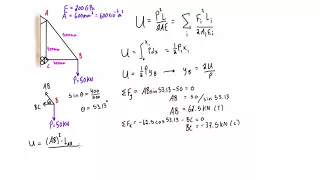 E = 200 GPa
A = 600mm² = 600×10⁻⁶ m²
A
B
C
P=50kN
A
BC
B
θ
P=50kN
sin θ = 400/500
θ = 53.13°
U = (AB)²·L_AB
U = P²L/2AE = Σ_i F_i² L_i/2A_iE_i
U = ∫₀^x₁ P dx = ½P₁x₁
U = ½P y_B → y_B = 2U/P
ΣF_y = AB sin 53.13 - 50 = 0
AB = 50/sin 53.13
AB = 62.5 kN (T)
ΣF_x = -62.5 cos 53.13 - BC = 0
BC = -37.5 kN (C)